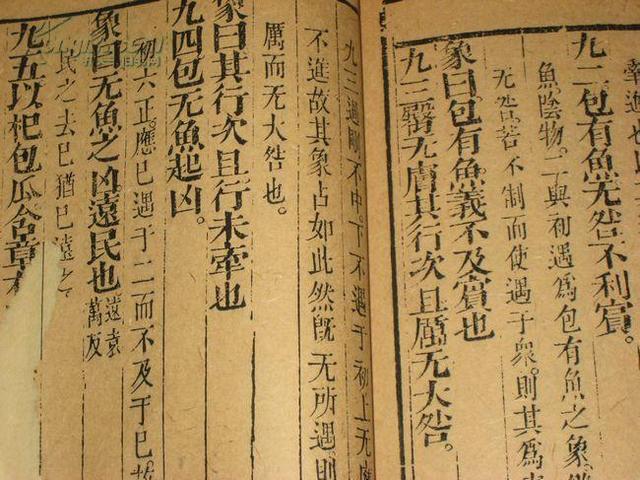 九二包有魚无咎不利賓。
魚陰物。二與初遇爲包有魚之象。
无咎。若不制而使遇于衆。則其爲
象曰。包有魚義不及賓也
九三臀无膚其行次且厲无大咎。
九三過剛不中。下不遇于初上无應
不進故其象占如此然既无所遇。則
厲而无大咎也。
象曰其行次且行未牽也
九四包无魚起凶。
初六正。應已遇于二而不及于已故
象曰无魚之凶遠民也 遠袁萬反
民之去已猶已遠之
九五以杞包瓜含章有